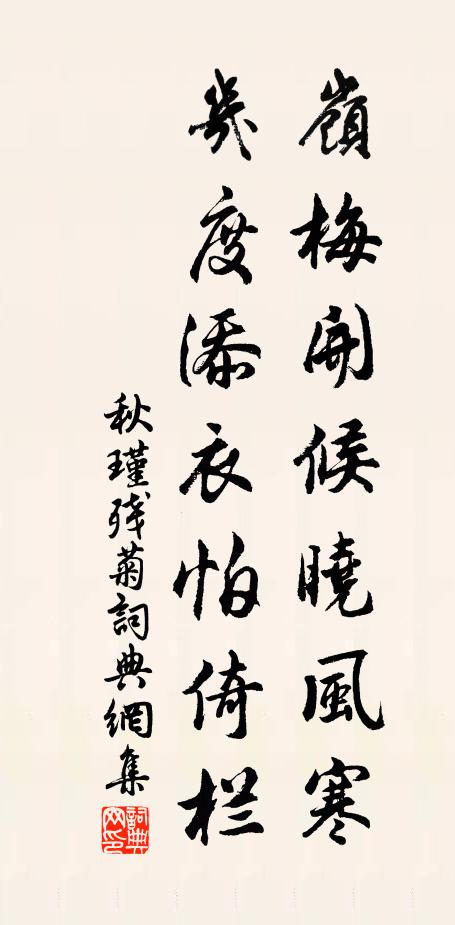 嶺梅開候曉風寒
幾度添衣怕倚栏
秋瑾残菊詞典網集
詞典网印